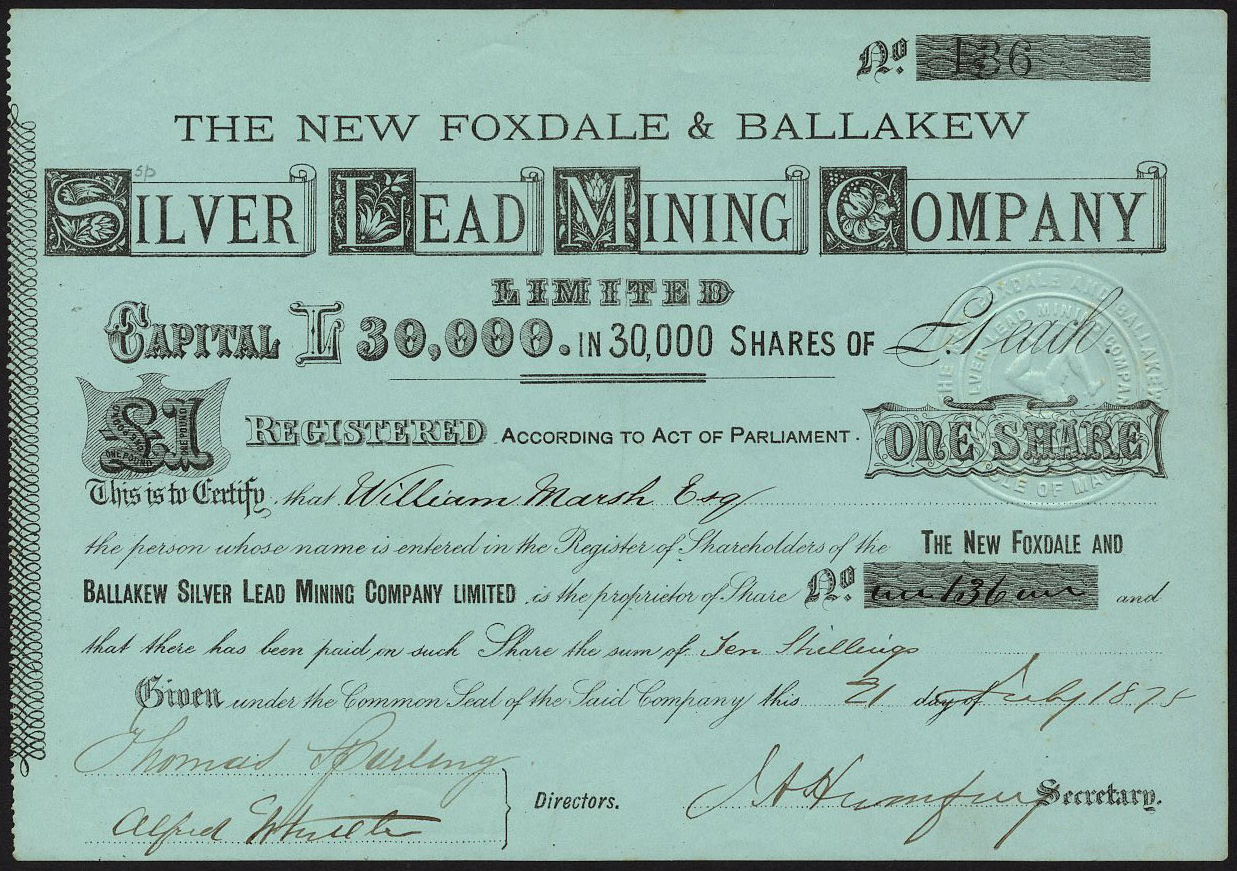 No. 136
THE NEW FOXDALE & BALLAKEW
SILVER LEAD MINING COMPANY
LIMITED
CAPITAL £30,000. IN 30,000 SHARES OF £1 each.
£1 REGISTERED ACCORDING TO ACT OF PARLIAMENT. ONE SHARE
This is to Certify that William Marsh Esq
the person whose name is entered in the Register of Shareholders of the THE NEW FOXDALE AND
BALLAKEW SILVER LEAD MINING COMPANY LIMITED is the proprietor of Share No. 136 and
that there has been paid on such Share the sum of Ten Shillings
Given under the Common Seal of the Said Company this 21 day of July 1875
Thomas Sparling
Alfred
Directors.
Secretary.